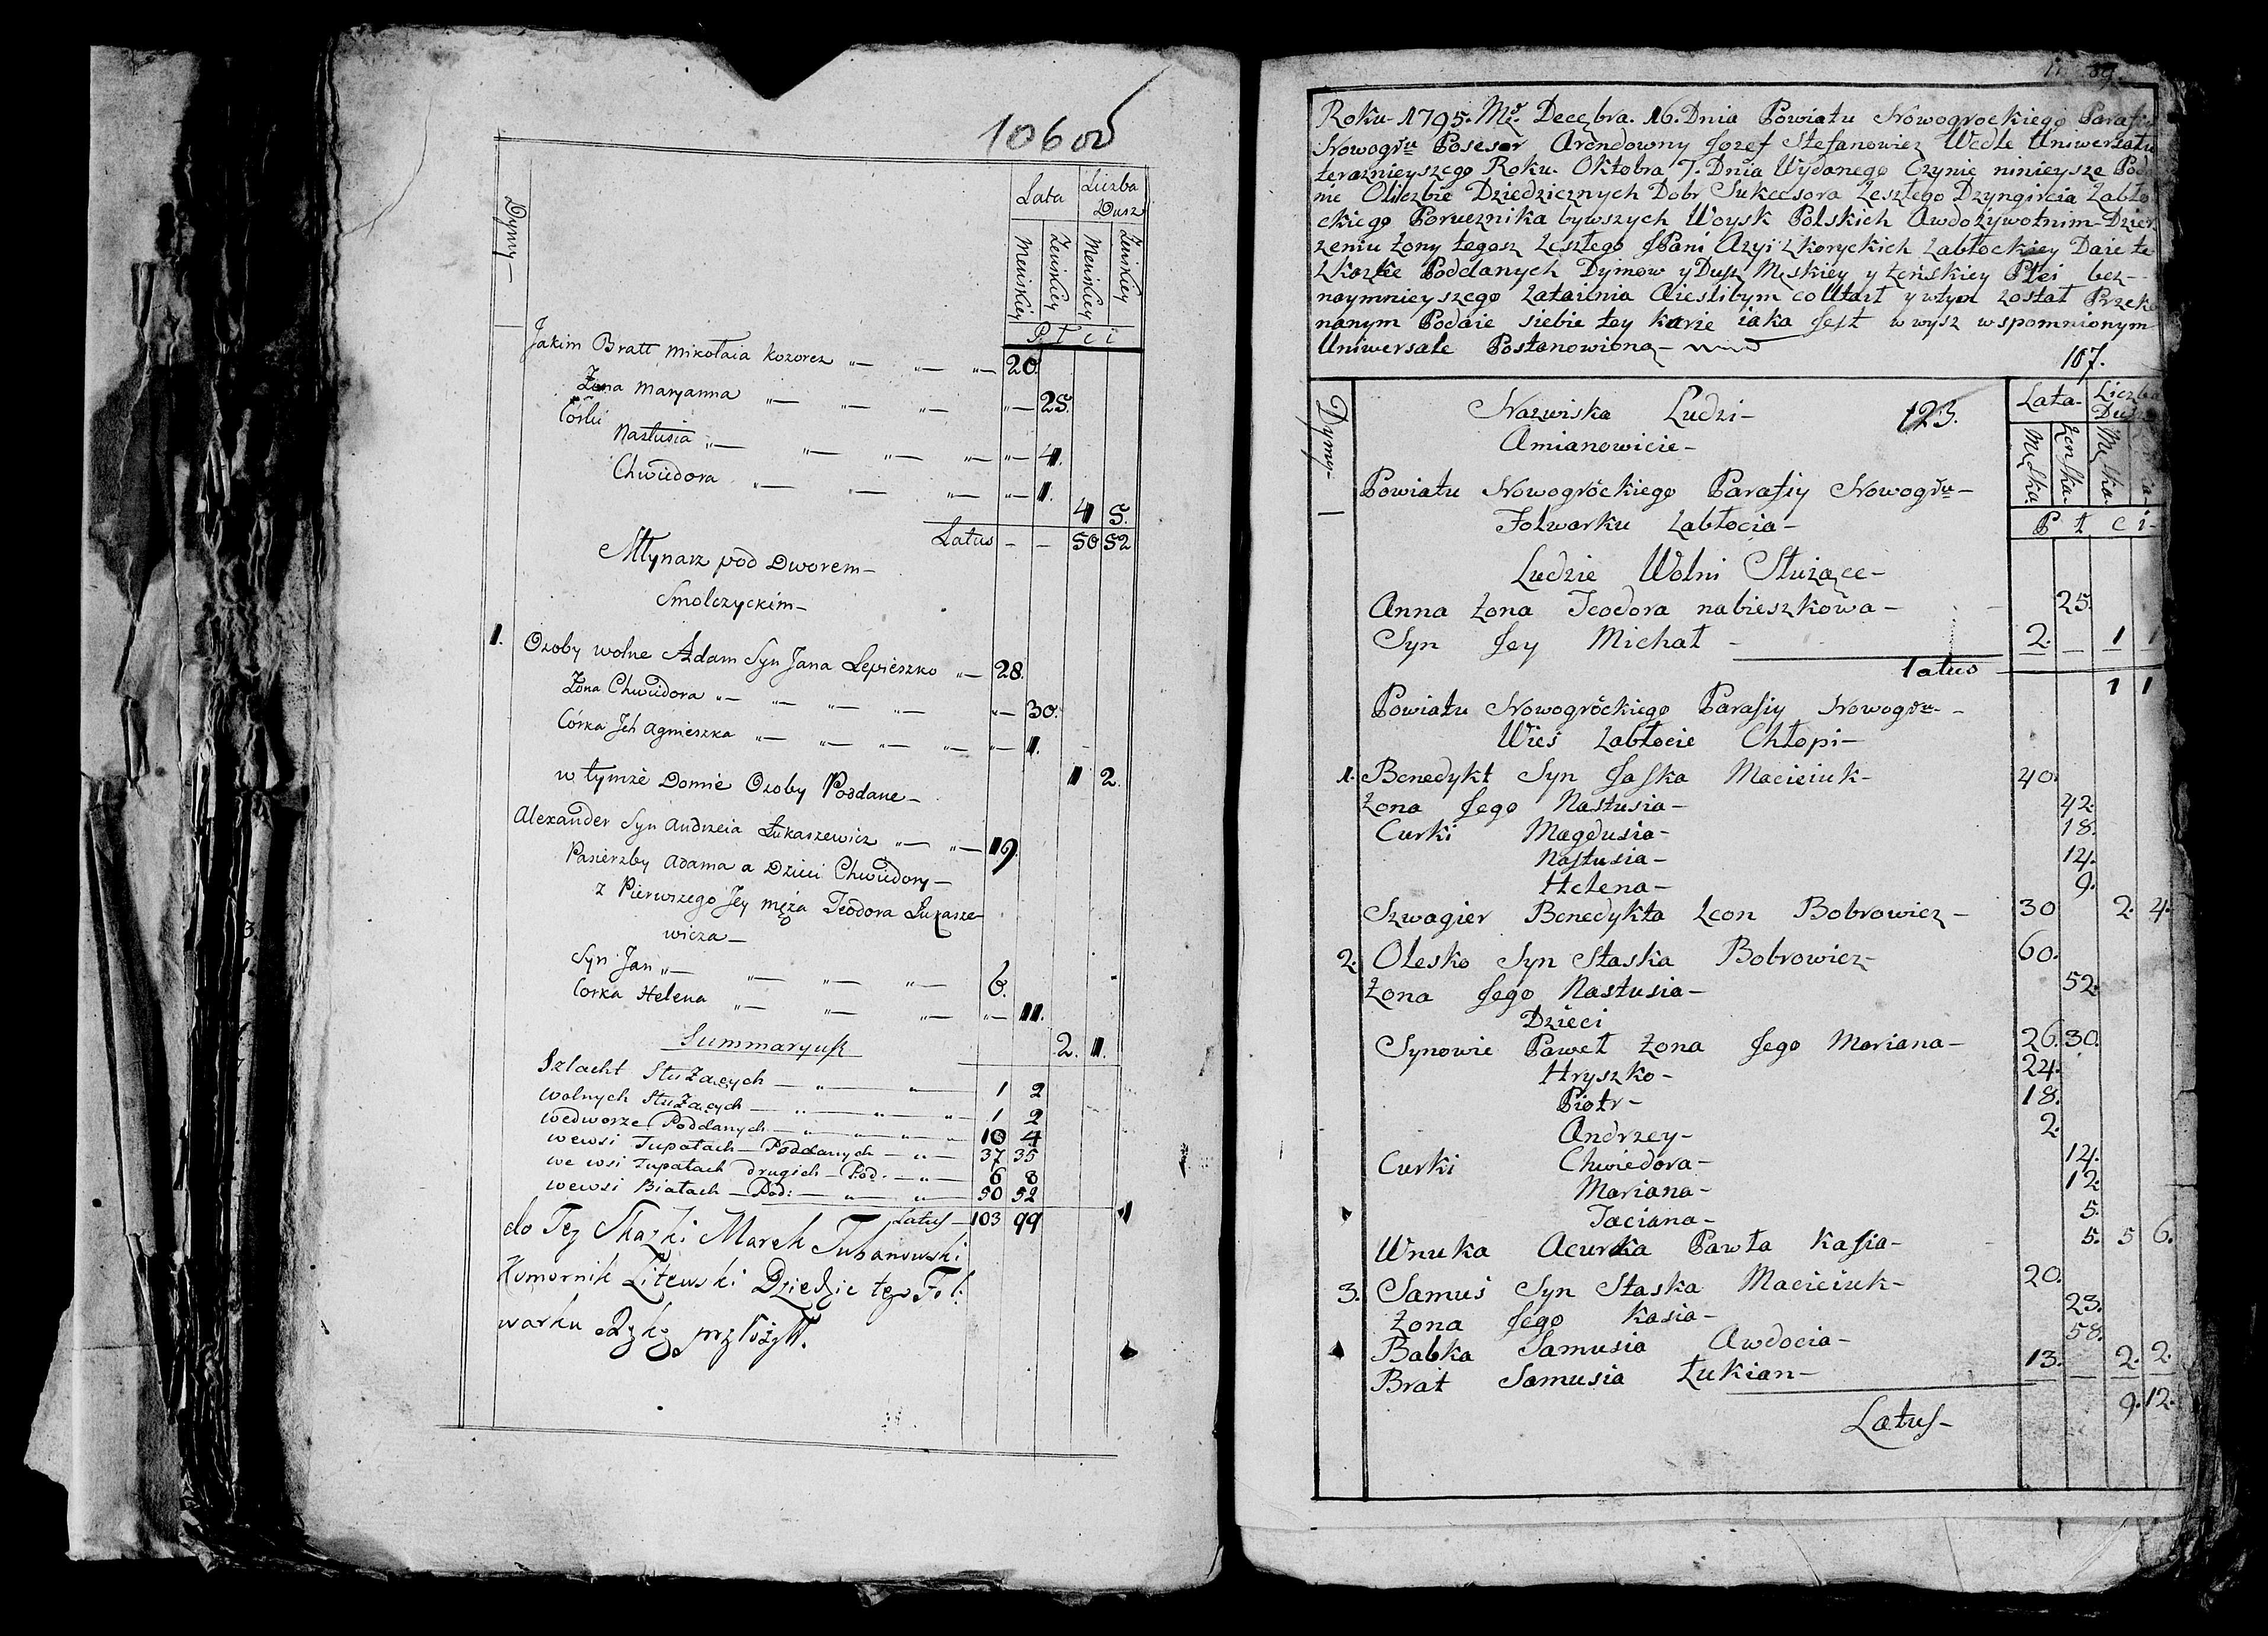 106 об
Dymy —
Lata
Liczba Dusz
Męnskiey Żenskiey Męnskiey Żenskiey
P ł c i
Jakim Bratt Mikołaia Kozorez 20.
Żona Maryanna 25.
Córki
Nastusia 4.
Chwiedora 1.
4 5.
Latus — — 50 52
Młynarz pod Dworem —
Smolczyckim —
1. Osoby wolne Adam Syn Jana Lepieszko 28.
Żona Chwiedora 30.
Córka Jch Agnieszka 1.
1 2.
w tymże Domie Osoby Poddane —
Alexander Syn Andrzeia Łukaszewicz 19.
Pasierzby Adama a Dzieci Chwiedory —
z Pierwszego Jey męża Teodora Łukasze-
wicza —
Syn Jan 6.
Corka Helena 11.
2. 1.
Summaryusz
Szlacht Służących — 1 2
wolnych Służących — 1 2
wedworze Poddanych — 10 4
wewsi Tupałach — Poddanych — 37 35
we wsi Tupałach drugich — Pod. — 6 8
wewsi Białach — Pod: — 50 52
Latus — 103 99
do Tey Skazki Marek Tuhanowski
Komornik Litewski Dziedzic tego Fol:
warku Rękę przłożył.
Roku 1795. Mca Decębra. 16. Dnia Powiatu Nowogrockiego Parafii
Nowogru Posesor Arendowny Jozef Stefanowicz Wedle Uniwersału
teraznieyszego Roku. Oktobra 7. Dnia Wydanego Czynię ninieysze Poda
nie Oliczbie Dziedzicznych Dobr Sukcesora Zeszłego Dzyngircia Zabło
ckiego Porucznika bywszych Woysk Polskich Awdożywotnim Dzier
zeniu Żony tegosz Zeszłego JPani Azyi Zkoryckich Zabłockiey Daie tę
Zkazkę Poddanych Dymow y Dusz Męskiey y Żeńskiey Płci bez —
naymnieyszego Zataienia Aieslibym co Utaił y wtym został Przeko
nanym Podaie siebie tey karze iaka Jest w wysz wspomnionym
Uniwersale Postanowiona —
107.
Dymy —
Nazwiska Ludzi — 123.
Amianowicie —
Lata — Liczba Dusz
Męska Żenska Męska
P ł c i —
Powiatu Nowogróckiego Parafiy Nowogru —
Folwarku Zabłocia —
Ludzie Wolni Służące —
Anna Żona Teodora nabieszkowa — 25.
Syn Jey Michał — 2. 1 1
Latus 1 1
Powiatu Nowogróckiego Parafiy Nowogru —
Wieś Zabłocie Chłopi —
1. Benedykt Syn Jaska Macieiuk — 40.
Żona Jego Nastusia — 42.
Curki Magdusia — 18.
Nastusia — 14.
Helena — 9.
Szwagier Benedykta Leon Bobrowicz — 30 2. 4.
2. Olesko Syn Staska Bobrowicz — 60.
Żona Jego Nastusia — 52.
Dzieci
Synowie Paweł Żona Jego Mariana — 26. 30.
Hryszko — 24.
Piotr — 18.
Andrzey — 2.
Curki Chwiedora — 14.
Mariana — 12.
Taciana — 5.
Wnuka Acurka Pawła Kasia — 5. 5 6.
3. Samuś Syn Staska Macieiuk — 20.
Żona Jego Kasia — 23.
Babka Samusia Awdocia — 58.
Brat Samusia Łukian — 13. 2. 2.
Latus — 9. 12.